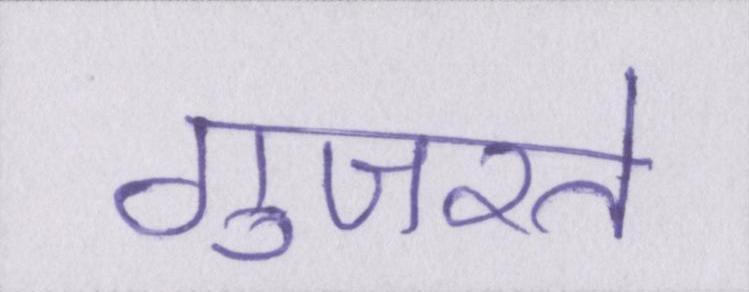 गुजरते